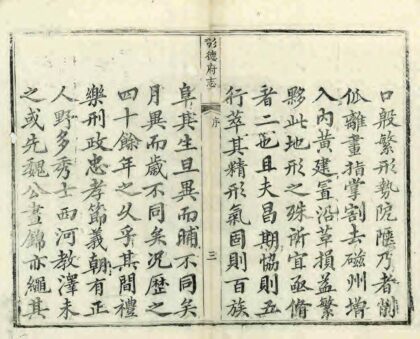 口般繁形勢阨隘乃者削
仳離畫指掌割去磁州增
入內黃建置沿革損益繁
夥此地形之殊所宜亟脩
者二也且夫昌期協則五
行萃其精形氣固則百族
彰德府志
序
三
阜其生旦異而晡不同矣
月異而歲不同矣況歷之
四十餘年之久乎其間禮
樂刑政忠孝節義朝有正
人野多秀士西河教澤未
之或先魏公晝錦亦繩其